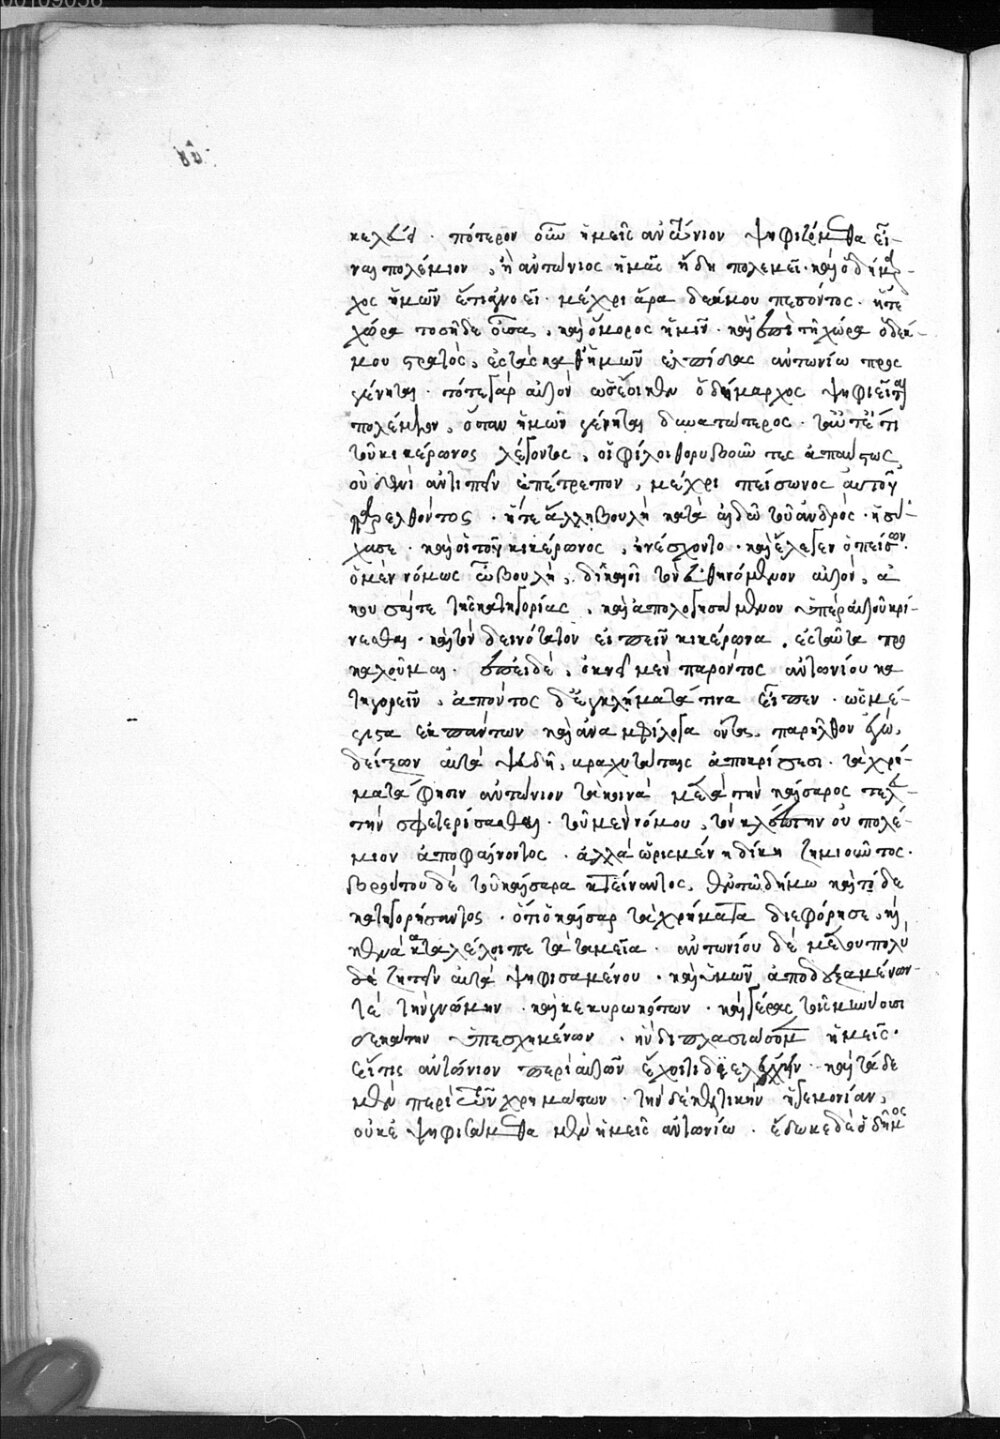 κελεύει. πότερον οὖν ἡμεῖς ἀντώνιον ψηφιζόμεθα εἶ-
ναι πολέμιον, ἢ ἀντώνιος ἡμᾶς ἤδη πολεμεῖ. καὶ ὁ δήμαρ-
χος ἡμῶν ἔτι ἀγνοεῖ. μέχρι ἄρα δεκίμου πεσόντος. ἥ τε
χώρα τοσήδε οὖσα, καὶ ὅμορος ἡμῖν. καὶ ἐπὶ τῇ χώρᾳ ὁ δεκί-
μου στρατὸς, ἐς τὰς καθ' ἡμῶν ἐλπίδας ἀντωνίῳ προσ
γένηται. τότε γὰρ αὐτὸν ὡς ἔοικεν ὁ δήμαρχος ψηφιεῖται
πολέμιον, ὅταν ἡμῶν γένηται δυνατώτερος. ταῦτ' ἔτι
τοῦ κικέρωνος λέγοντος, οἱ φίλοι θορυβοῦντες ἀπαύστως,
οὐδενὶ ἀντιπεῖν ἐπέτρεπον, μέχρι πείσωνος αὐτοῦ
παρελθόντος. ἥ τε ἄλλη βουλὴ κατὰ αἰδῶ τοῦ ἀνδρὸς. ἡσύ-
χασε. καὶ οἱ τοῦ κικέρωνος, ἠνέσχοντο. καὶ ἔλεξεν ὁ πείσων.
ὁ μὲν νόμος ὦ βουλὴ, δικαιοῖ τὸν εὐθυνόμενον αὐτὸν, ἀ
κοῦσαί τε τῆς κατηγορίας, καὶ ἀπολογησάμενον ὑπὲρ αὑτοῦ κρί-
νεσθαι. καὶ τὸν δεινότατον εἰπεῖν κικέρωνα, ἐς ταῦτα προ
καλοῦμαι. ἐπειδὴ, ὀκνεῖ μὲν παρόντος ἀντωνίου κα
τηγορεῖν, ἀπόντος δ' ἐγκλήματά τινα εἶπεν. ὡς μέ-
γιστα ἐκ πάντων καὶ ἀναμφίλογα ὄντα, παρῆλθον ἐγὼ,
δείξων αὐτὰ ψευδῆ, βραχυτάταις ἀποκρίσεσι. τὰ χρή-
ματά φησιν ἀντώνιον τὰ κοινὰ μετὰ τὴν καίσαρος τελευ-
τὴν σφετερίσασθαι. τοῦ μὲν νόμου, τὸν κλέπτην οὐ πολέ-
μιον ἀποφαίνοντος. ἀλλὰ ὡρισμένῃ δίκῃ ζημιοῦντος.
βρούτου δὲ τοῦ καίσαρα κτείναντος, ἐν τῷ δήμῳ καὶ τόδε
κατηγορήσαντος. ὅτι ὁ καίσαρ τὰ χρήματα διεφόρησε, καὶ
κενὰ καταλέλοιπε τὰ ταμεῖα. ἀντωνίου δὲ μετ' οὐ πολὺ
δὲ ζητεῖν αὐτὰ ψηφισαμένου. καὶ ὑμῶν ἀποδεξαμένων
τε τὴν γνώμην. καὶ κεκυρωκότων. καὶ γέρας τοῖς μηνύουσι
δεκάτην ὑπεσχημένων. ἣν διπλασιάσομεν ἡμεῖς.
εἴ τις ἀντώνιον περὶ αὐτῶν ἔχοι τι διελέγχειν. καὶ τάδε
μὲν περὶ τῶν χρημάτων. τὴν δὲ κελτικὴν ἡγεμονίαν,
οὐκ ἐψηφισάμεθα μὲν ἡμεῖς ἀντωνίῳ. ἔδωκε δὲ ὁ δῆμος